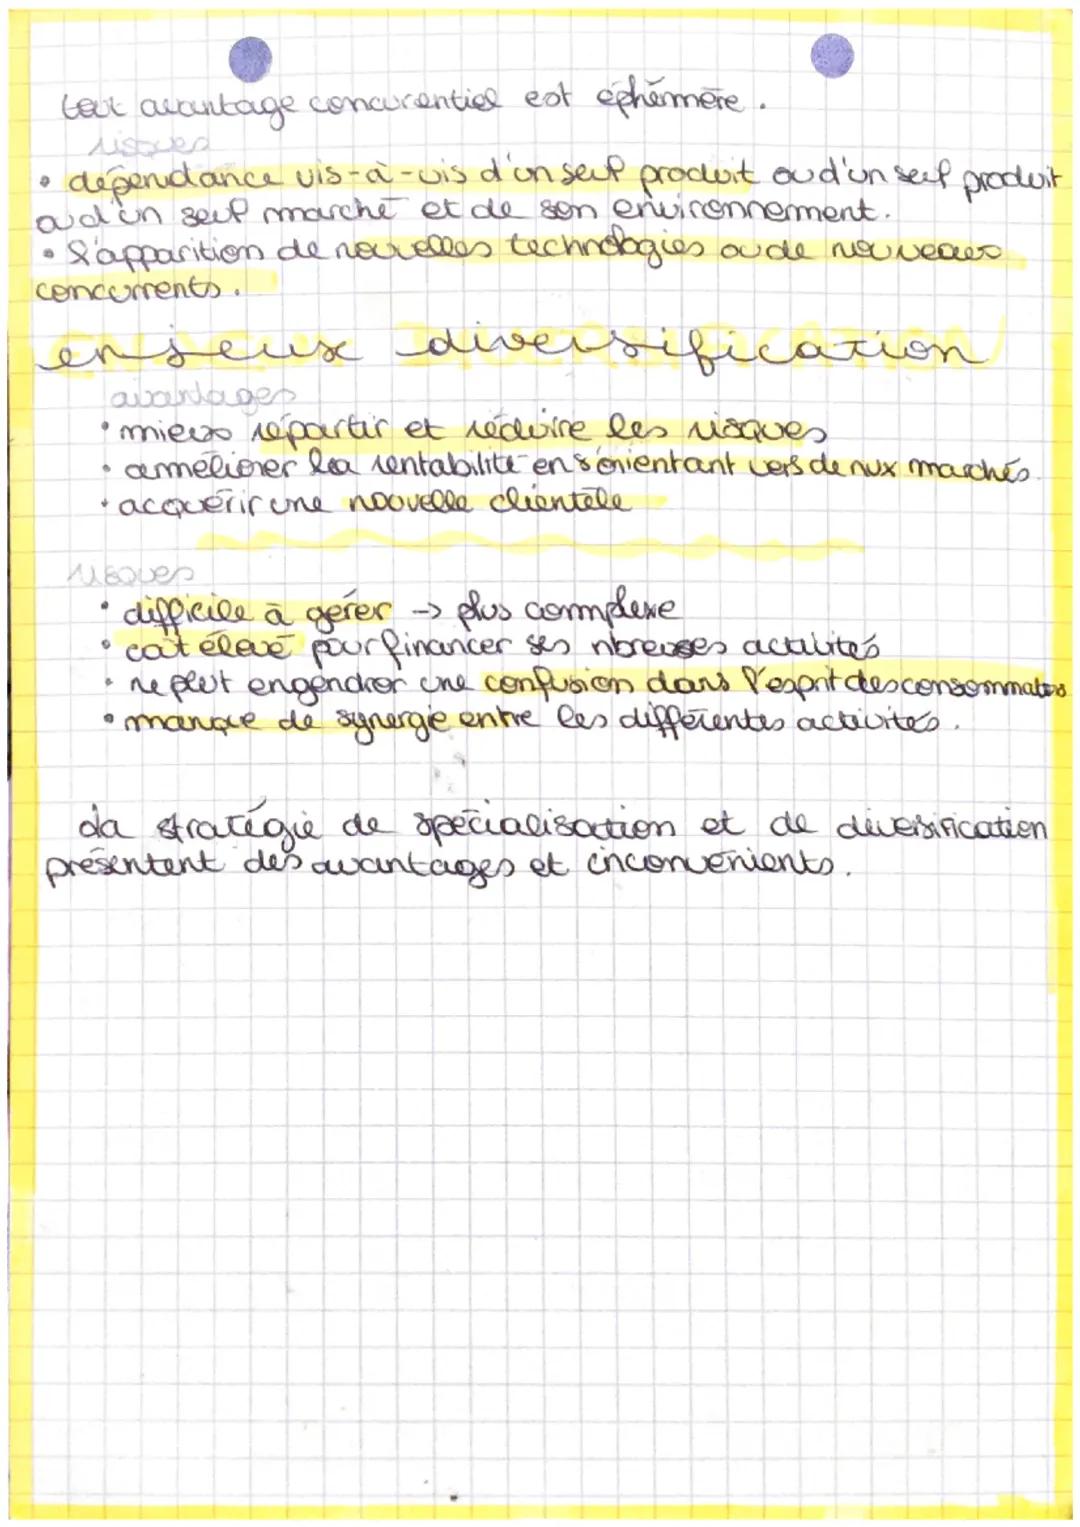 tout avantage concurentiel est éphémère.
risques
• dépendance vis-à-vis d'un seul produit ou d'un seul produit
ou d'un seul marché et de son environnement.
• l'apparition de nouvelles technologies ou de nouveaux
concurrents.
enjeux diversification
avantages
• mieux répartir et réduire les risques
• amméliorer la rentabilité en s'orientant vers de nux marchés.
• acquérir une nouvelle clientèle
risques
• difficile à gérer → plus complexe
• coût élevé pour financer ses nbreuses activités
• ne peut engendrer une confusion dans l'esprit des consommateurs
• manque de synergie entre les différentes activités.
La stratégie de spécialisation et de diversification
présentent des avantages et inconvénients.